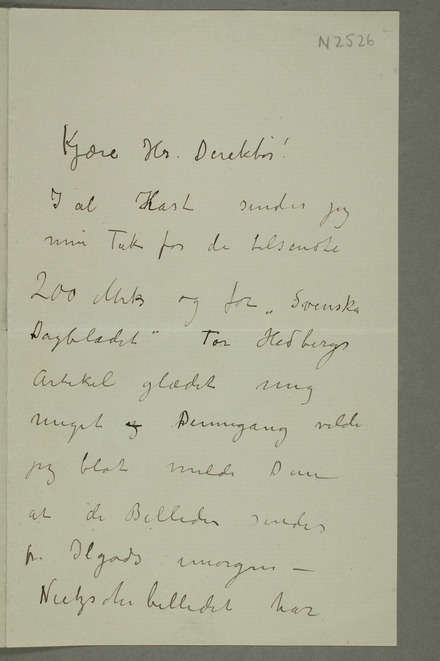 N 2526
Kjære Hr. Direktör!
I al Hast sender jeg
min Tak for de tilsendte
200 Mrk og for „Svenska
Dagbladet“ Tor Hedbergs
Artikel glædet mig
meget og Dennegang vilde
jeg blot melde Dem
at de Billeder sendes
pr. Ilgods imorgen —
Nietzschebilledet har